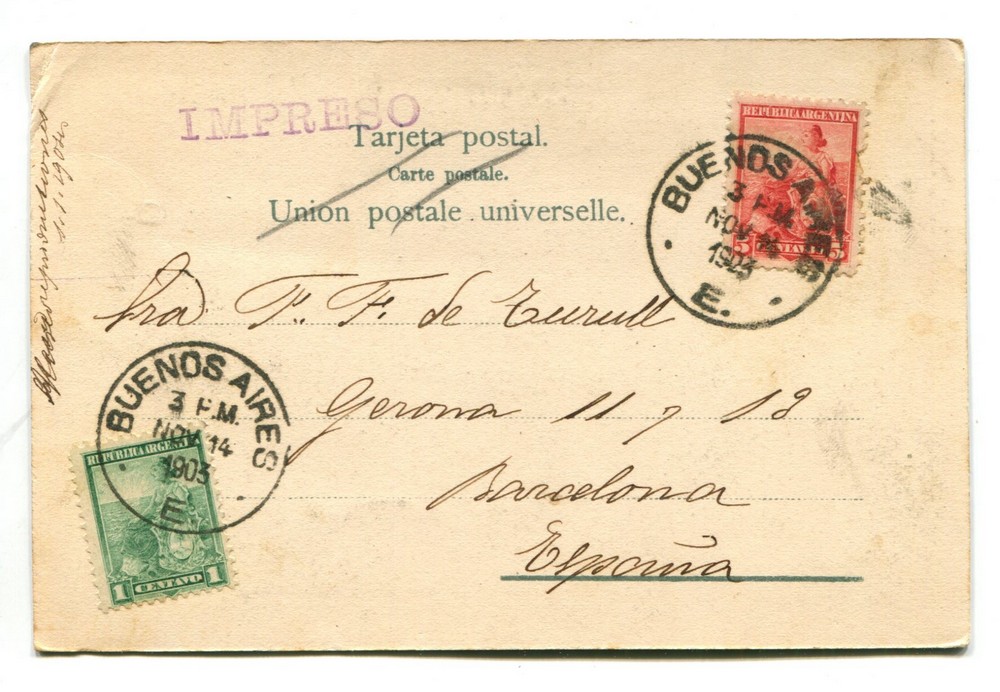 IMPRESO
Tarjeta postal.
Carte postale.
Union postale universelle.
REPUBLICA ARGENTINA
5 CENTAVOS 5
BUENOS AIRES
3 P.M.
NOV 14
1903
E.
Sra F. F. de Turull
Gerona 11 y 13
Barcelona
España
BUENOS AIRES
3 P.M.
NOV 14
1903
E.
REPUBLICA ARGENTINA
1 CENTAVO 1